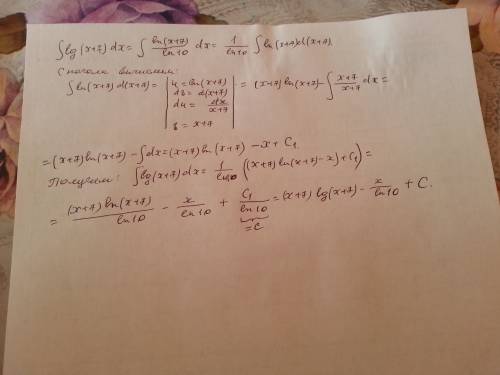 ∫lg(x+7)dx = ∫ ln(x+7)/ln10 dx = 1/ln10 ∫ln(x+7)d(x+7)
Сначала вычислим:
∫ln(x+7)d(x+7) = | u = ln(x+7) dv = d(x+7) du = dx/(x+7) v = x+7 | = (x+7)ln(x+7) - ∫ (x+7)/(x+7) dx =
= (x+7)ln(x+7) - ∫dx = (x+7)ln(x+7) - x + C₁
Получим: ∫lg(x+7)dx = 1/ln10 ((x+7)ln(x+7) - x) + C₁) =
= (x+7)ln(x+7)/ln10 - x/ln10 + C₁/ln10 = (x+7)lg(x+7) - x/ln10 + C.
= C